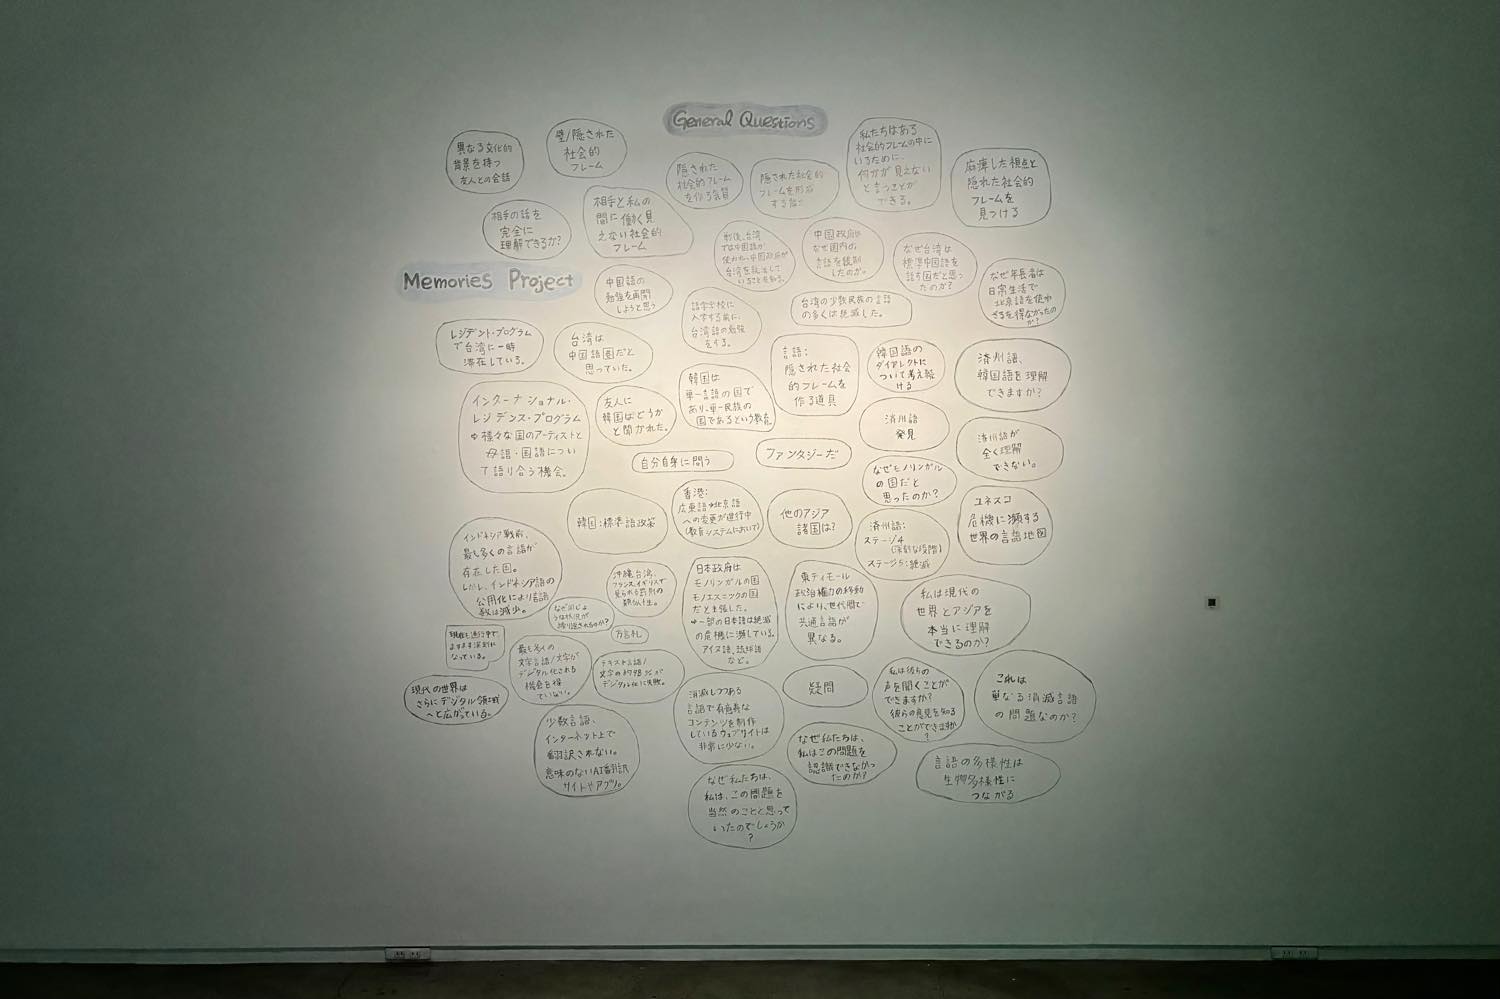 General Questions
異なる文化的
背景を持つ
友人との会話
壁/隠された
社会的
フレーム
隠された
社会的フレーム
を作る
隠された社会的
フレームを形成
する
私たちはある
社会的フレームの中に
いるために、
何かが見えない
と言うことが
できる。
麻痺した視点と
隠れた社会的
フレームを
見つける
相手の話を
完全に
理解できるか?
相手と私の
間に働く見
えない社会的
フレーム
戦後、台湾
では中国語が
使われ、中国政府が
台湾を
中国政府は
なぜ国内の
言語を統制
したのか。
なぜ台湾は
標準中国語を
話す国だと思っ
たのか?
なぜ年長者は
日常生活で
北京語を使わ
ざるを得なかったの
か?
Memories Project
中国語の
勉強を再開
しようと思う
語学学校に
入学する前に、
台湾語の勉強
をする。
台湾の少数民族の言語
の多くは絶滅した。
レジデント・プログラム
で台湾に一時
滞在している。
台湾は
中国語圏だと
思っていた。
韓国は
単一言語の国で
あり、単一民族の
国であるという教育。
言語:
隠された社会
的フレームを
作る道具
韓国語の
ダイアレクトに
ついて考え続
ける
済州語、
韓国語を理解
できますか?
インターナショナル・
レジデンス・プログラム
⇨様々な国のアーティストと
母語・国語につい
て語り合う機会。
友人に
韓国はどうか
と聞かれた。
済州語
発見
済州語が
全く理解
できない。
自分自身に問う
ファンタジーだ
なぜモノリンガル
の国だと
思ったのか?
韓国:標準語政策
香港:
広東語→北京語
への変更が進行中
(教育システムにおいて)
他のアジア
諸国は?
済州語:
ステージ4
(深刻な段階)
ステージ5:絶滅
ユネスコ
危機に瀕する
世界の言語地図
インドネシア戦前、
最も多くの言語が
存在した国。
しかし、インドネシア語の
公用化により言語
数は減少。
沖縄、台湾、
フランス、イギリスで
見られる罰則の
類似性。
なぜ同じよ
うな状況が
繰り返されるのか?
方言札
日本政府は
モノリンガルの国
モノエスニックの国
だと主張した。
⇨一部の日本語は絶滅
の危機に瀕している。
アイヌ語、琉球語
など。
東ティモール
政治権力の移動
により、世代間で
共通言語が
異なる。
私は現代の
世界とアジアを
本当に理解
できるのか?
現在も進行中で
ますます深刻に
なっている。
最も多くの
文字言語/文字が
デジタル化される
機会を得
ていない。
テキスト言語/
文字の約98%が
デジタル化に失敗。
現代の世界は
さらにデジタル領域
へと広がっている。
少数言語、
インターネット上で
翻訳されない。
意味のないAI翻訳
サイトやアプリ。
消滅しつつある
言語で有意義な
コンテンツを制作
しているウェブサイトは
非常に少ない。
疑問
私は彼らの
声を聞くことが
できますか?
彼らの意見を知る
ことができますか
?
これは
単なる消滅言語
の問題なのか?
なぜ私たちは、
私はこの問題を
認識できなかっ
たのか?
言語の多様性は
生物多様性に
つながる
なぜ私たちは、
私は、この問題を
当然のことと思って
いたのでしょうか
?